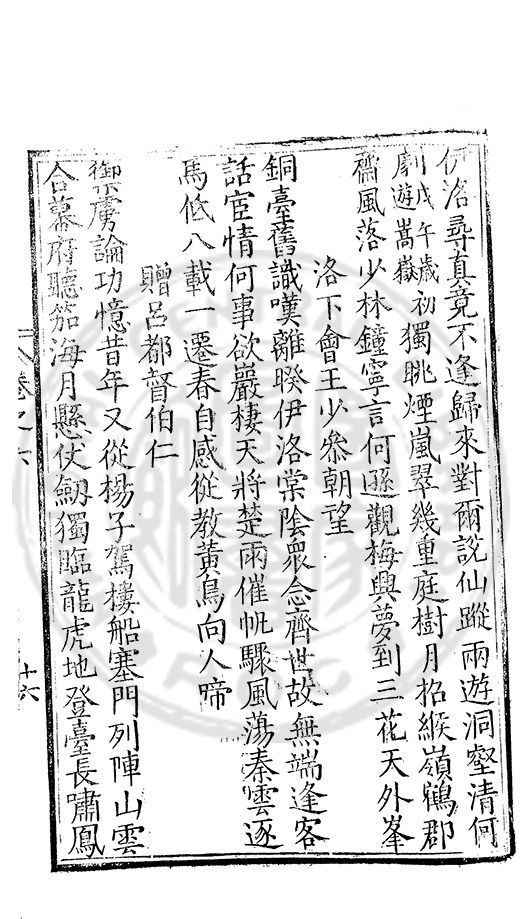 伊洛尋真竟不逢歸來對爾說仙蹤兩遊洞壑清何
劇戊午歲初遊嵩嶽獨眺煙嵐翠幾重庭樹月招緱嶺鶴郡
齋風落少林鐘寧言何遜觀梅興夢到三花天外峯
洛下會王少參朝望
銅臺舊識嘆離暌伊洛棠陰衆念齊世故無端逢客
話宦情何事欲巖棲天將楚雨催帆驟風蕩秦雲逐
馬低八載一遷春自感從教黃鳥向人啼
贈呂都督伯仁
禦虜論功憶昔年又從楊子駕樓船塞門列陣山雲
合幕府聽笳海月懸仗劒獨臨龍虎地登臺長嘯鳳
卷之六
十六